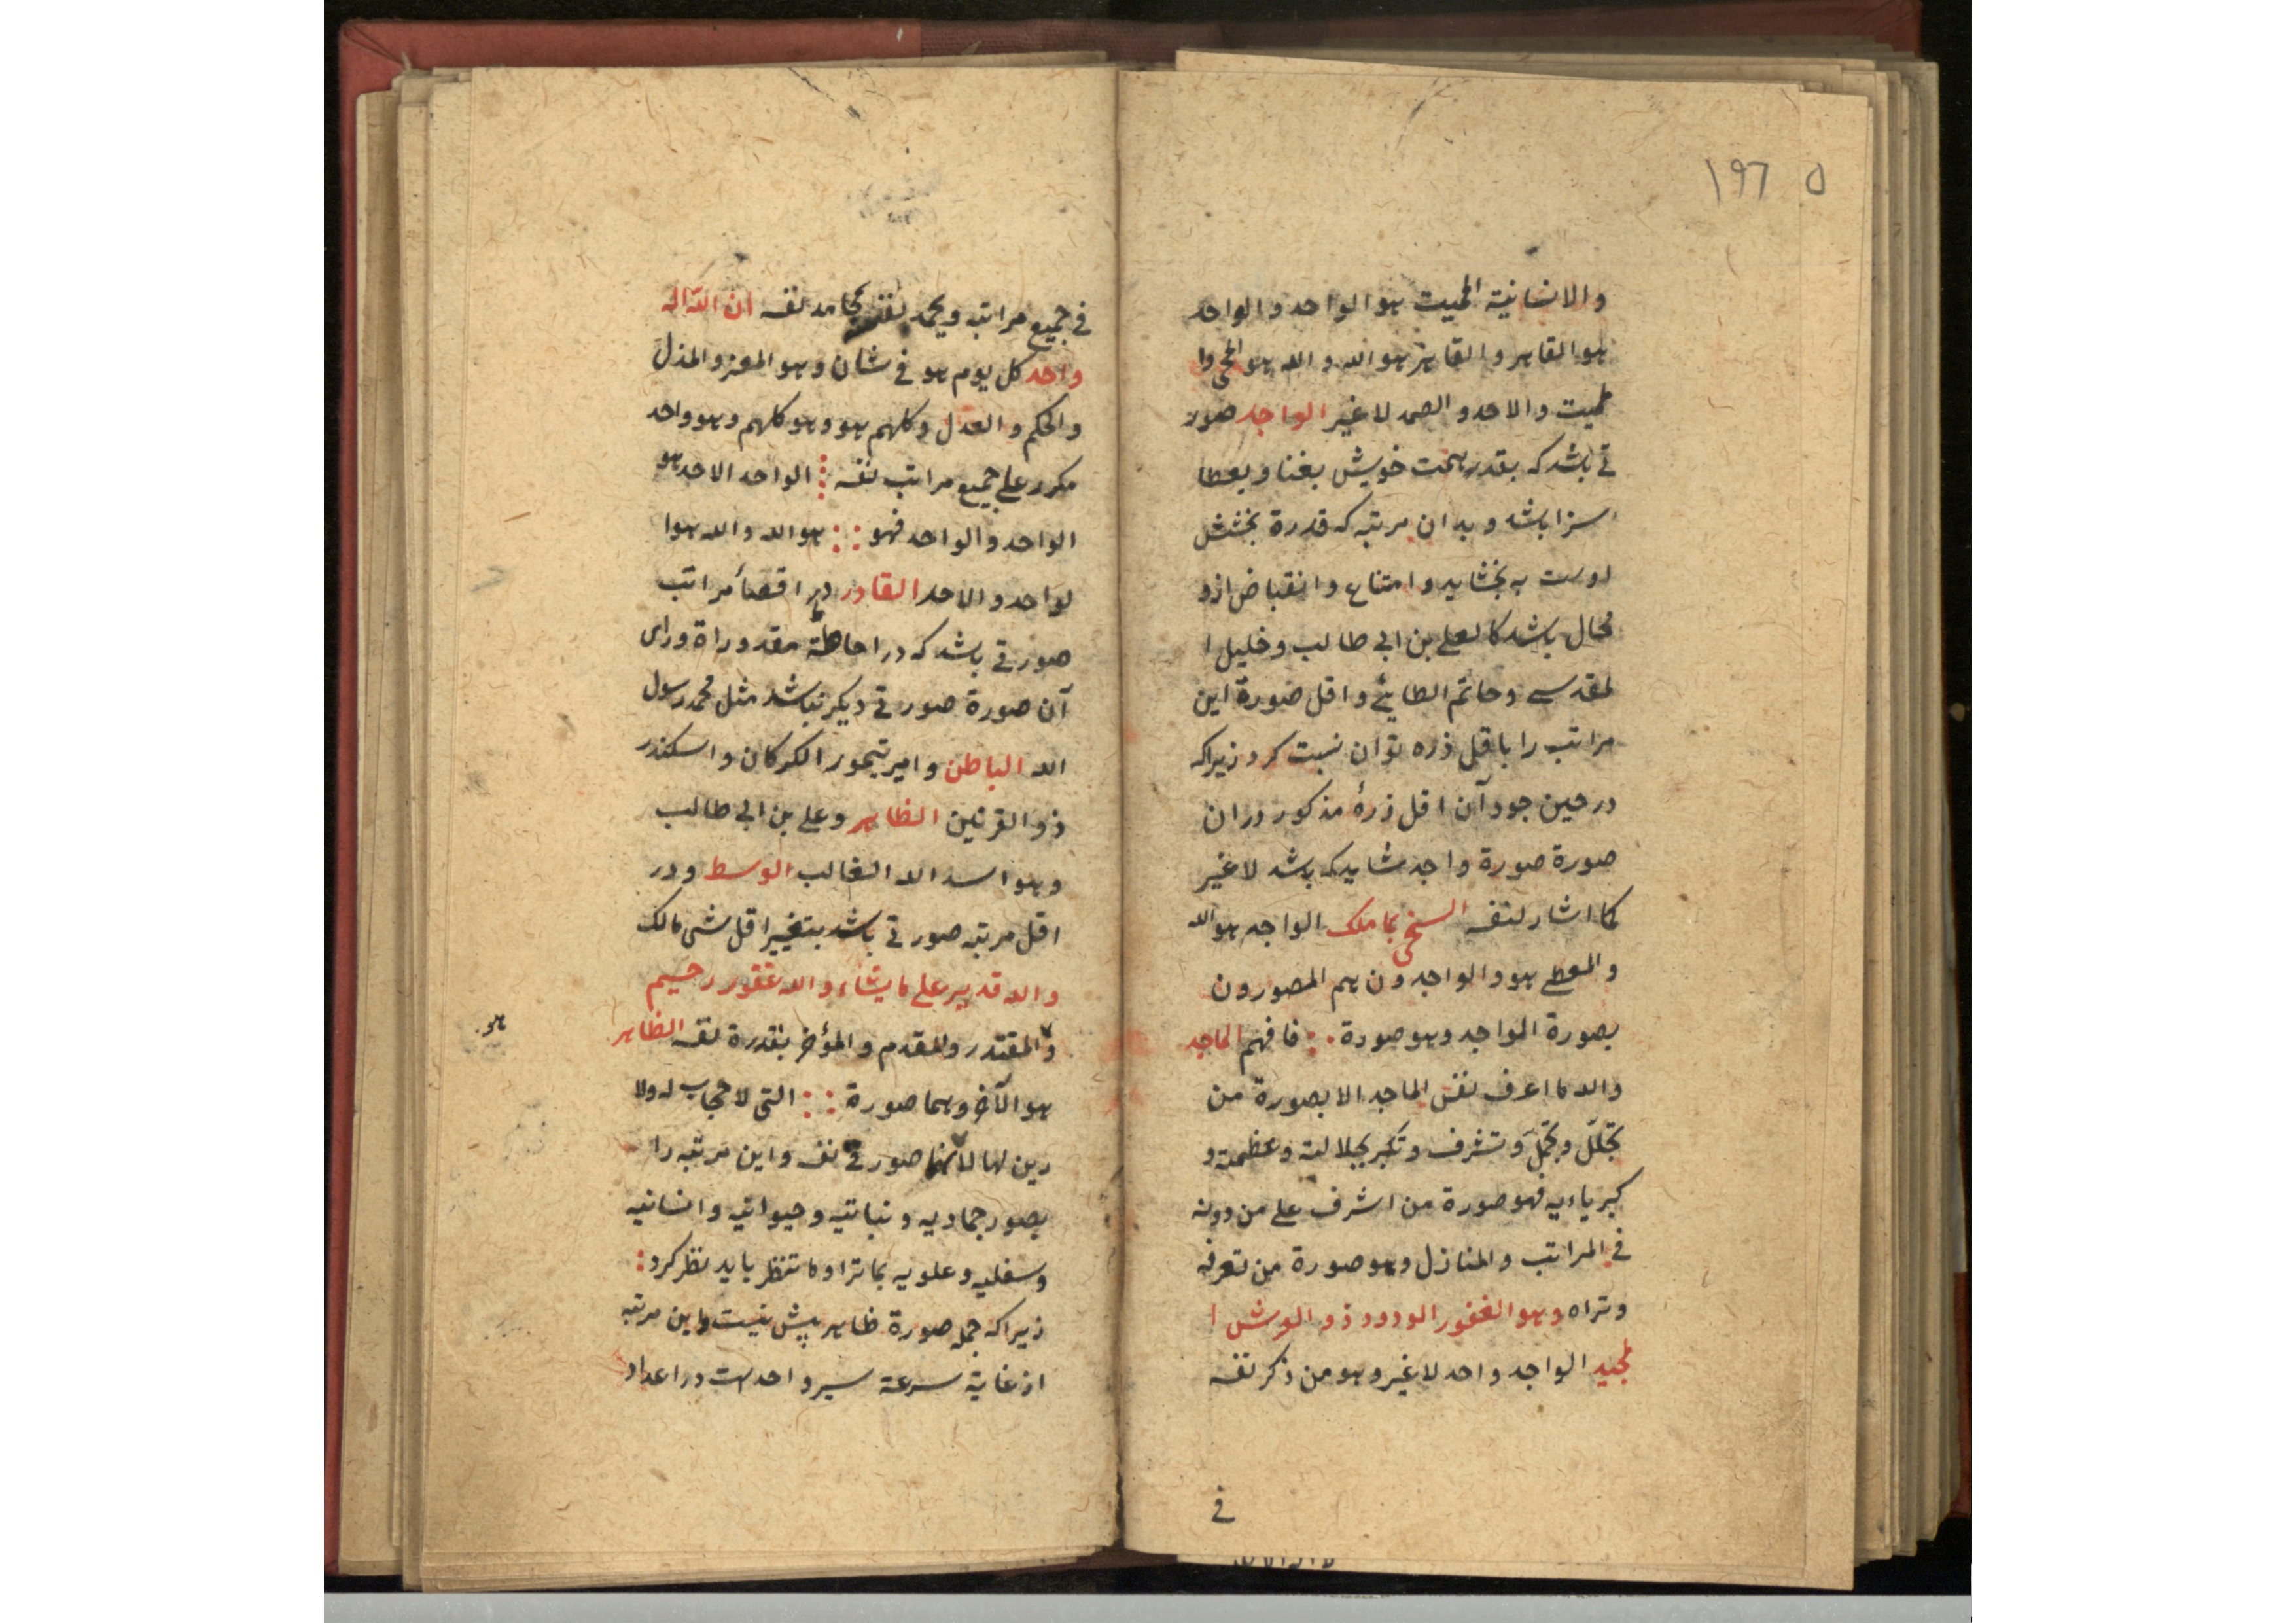 ١٩٦ ٥
والانسانیة المیت هو الواحد والواحد
هو القاهر والقاهر هو الله و الله هو المحی وا
لمیت والاحد و الصمد لا غیر الواجد صور
تی باشد که بقدر همت خویش بغنا و بعطا
سزا باشد و بدان مرتبه که قدرة بخشش
اوست به بخشاید و امتناع و انقباض ازو
محال باشد کالعلی بن ابی طالب و خلیل ا
لمقدسی و حاتم الطایئ و اقل صورة این
مراتب را باقل ذره توان نسبت کرد زیرا که
در حین جود آن اقل ذرهٔ مذکور در ان
صورة صورة واجد شاید که باشد لا غیر
کما اشار لنفسه السخی بما ملک الواجد هو الله
والمعطی هو و الواجدون هم المصورون
بصورة الواجد و هو صورة ∴ فافهم الماجد
والله ما اعرف نفس الماجد الا بصورة من
تجلّل و تجمّل و تشرف و تکبر بجلالته و عظمته و
کبریاءیه فهو صورة من اشرف علی من دونه
فی المراتب والمنازل و هو صورة من تعرفه
و تراه و هو الغفور الودود ذو العرش ا
لمجید الواجد واحد لا غیر و هو من ذکر نفسه
فی
فی جمیع مراتبه و یحمد نفسه بمحامد نفسه ان الله اله
واحد کل یوم هو فی شان و هو المعز و المذل
والحکم و العدل و کلهم هو و هو کلهم و هو واحد
مکرر علی جمیع مراتب نفسه ⁞ الواحد الاحد هو
الواحد والواحد فهو :: هو الله و الله هو ا
لواحد و الاحد القادر در اقصأ مراتب
صورتی باشد که در احاطة مقدوراة ورای
آن صورة صورتی دیگر نباشد مثل محمد رسول
الله الباطن و امیر تیمور الکورکان و اسکندر
ذو القرنین الظاهر و علی بن ابی طالب
و هو اسد الله الغالب الوسط و در
اقل مرتبه صورتی باشد بتغییر اقل شی مالک
والله قدیر علی ما یشاء و الله غفور رحیم
والمقتدر والمقدم والمؤخر بقدرة نفسه الظاهر
هو الآخر و هما صورة :: التی لا حجاب له ولا
رین لها لانها صورتی نفسه و این مرتبه را
بصور جمادیه و نباتیه و حیوانیه و انسانیه
و سفلیه و علویه بما ترا و ما تنظر باید نظر کرد :
زیرا که جمله صورة ظاهر پیش نیست و این مرتبه
از غایة سرعة سیر واحد است در اعداد
هو